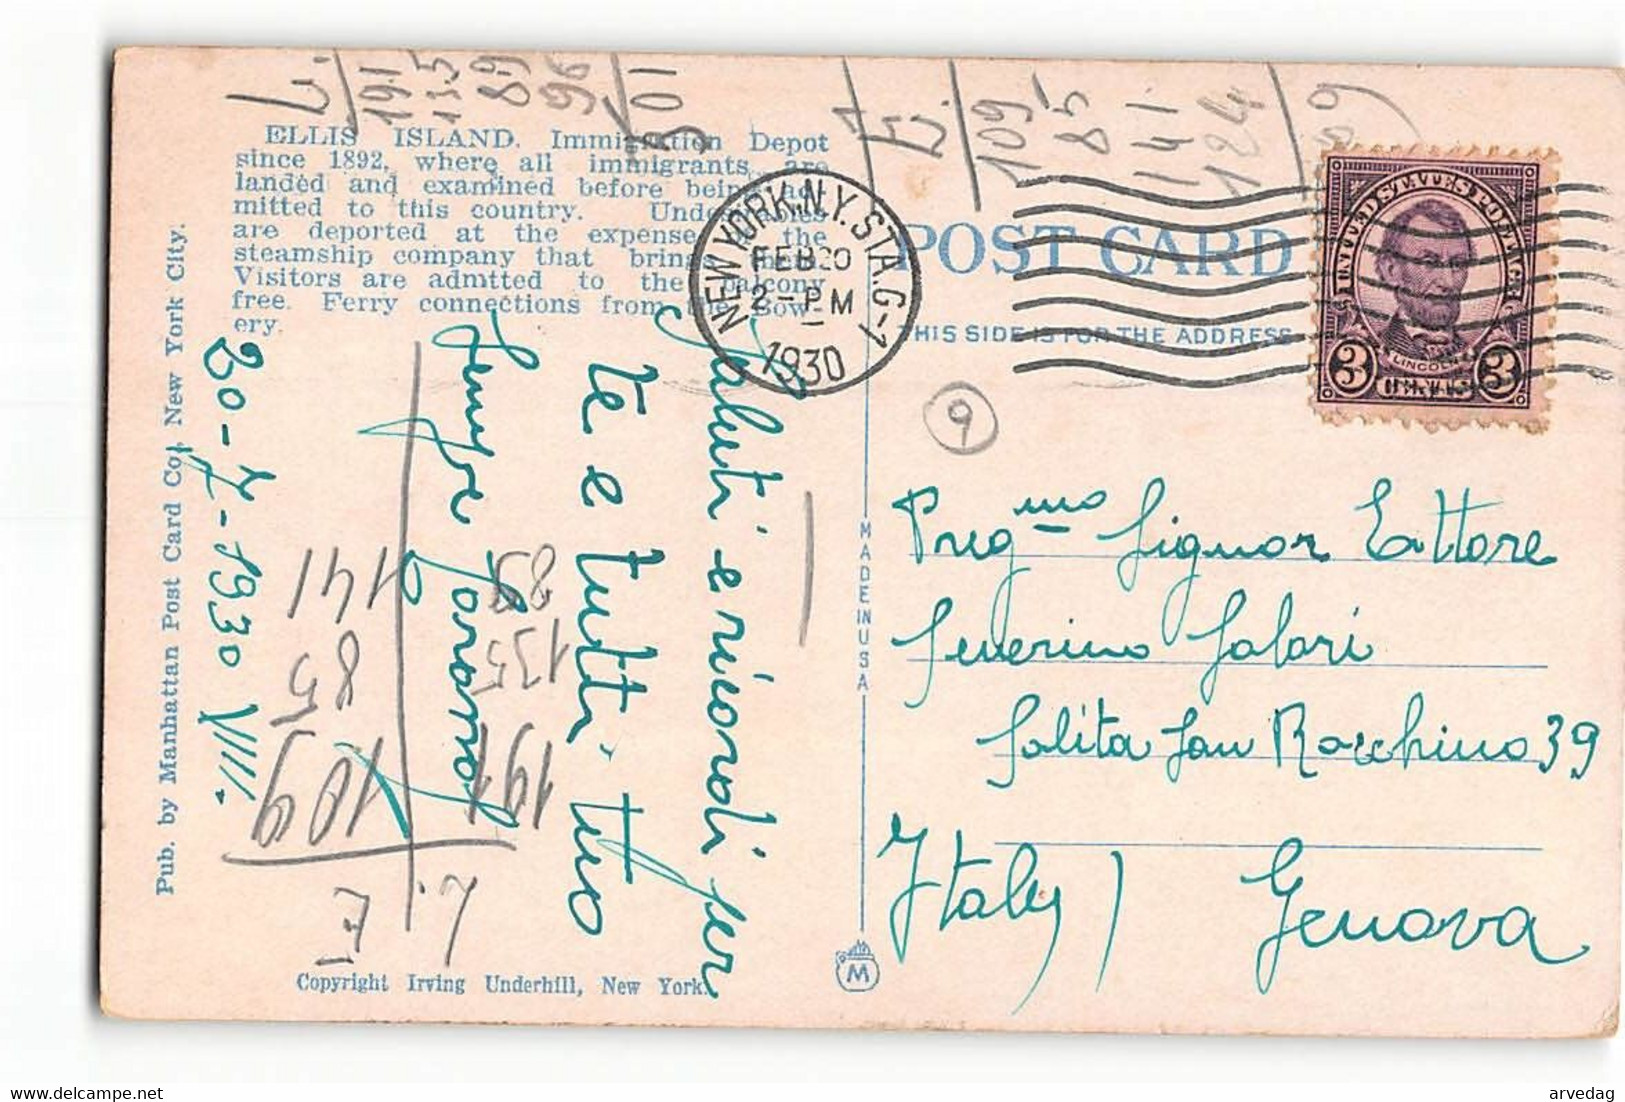 ELLIS ISLAND. Immigration Depot
since 1892, where all immigrants are
landed and examined before being ad-
mitted to this country. Undesirables
are deported at the expense of the
steamship company that brings them.
Visitors are admitted to the balcony
free. Ferry connections from the Bow-
ery.
Pub. by Manhattan Post Card Co., New York City.
Copyright Irving Underhill, New York.
MADE IN USA
M
POST CARD
THIS SIDE IS FOR THE ADDRESS
NEW YORK, N.Y. STA. G-1
FEB 20
2-PM
1930
UNITED STATES POSTAGE
LINCOLN
3 CENTS 3
9
L.
191
135
89
96
L.
109
85
141
124
20-2-1930 VIII.
Saluti e ricordi per
te e tutti. tuo
sempre
Preg.mo Signor Ettore
Severino Solari
Salita San Rocchino 39
Italy) Genova
141
85
109
89
135
191
L.
www.delcampe.net
arvedag